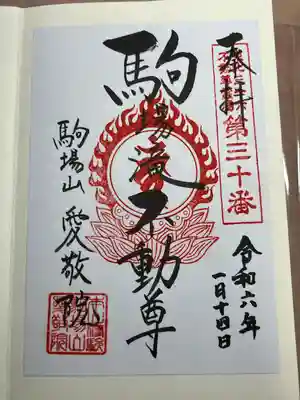 奉拝
第三十番
駒場滝不動尊
令和六年
一月十四日
駒場山 愛敬院